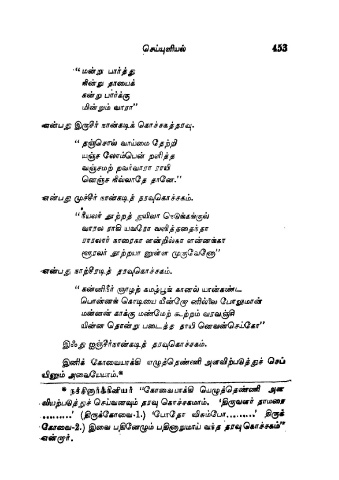 செய்யுளியல் 453
“மன்று பார்த்து
நின்று தாயைக்
கன்று பார்க்கு
மின்றும் வாரா”
என்பது இருசீர் நான்கடிக் கொச்சகத்தரவு.
“தஞ்சொல் வாய்மை தேற்றி
யஞ்ச லோம்பென் றளித்த
வஞ்சமற் றவர்வாரா ராயி
னெஞ்ச நில்லாதே தானே.”
என்பது முச்சீர் நான்கடித் தரவுகொச்சகம்.
என்பது நாற்சீரடித் தரவுகொச்சகம்.
“கன்னிநீர் ஞாழற் கமழ்பூங் கானல் யான்கண்ட
பொன்னங் கொடியை யீன்றோ ரில்லை போலுமான்
மன்னன் காக்கு மண்மேற் கூற்றம் வரவஞ்சி
யின்ன தொன்று படைத்த தாயி னெவன்செய்கோ”
இஃது ஐஞ்சீர்நான்கடித் தரவுகொச்சகம்.
இனிக் கோவையாக்கி எழுத்தெண்ணி அளவிற்படுத்துச் செய்
யினும் அவையேயாம்.*
* நச்சினார்க்கினியர் “கோவையாக்கி யெழுத்தெண்ணி அள
வியற்படுத்துச் செய்வனவும் தரவு கொச்சகமாம். ‘திருவளர் தாமரை
.........’ (திருக்கோவை-1.) ‘போதோ விசும்போ.........’ திருக்
கோவை-2.) இவை பதினேழும் பதினாறுமாய் வந்த தரவுகொச்சகம்”
என்றார்.